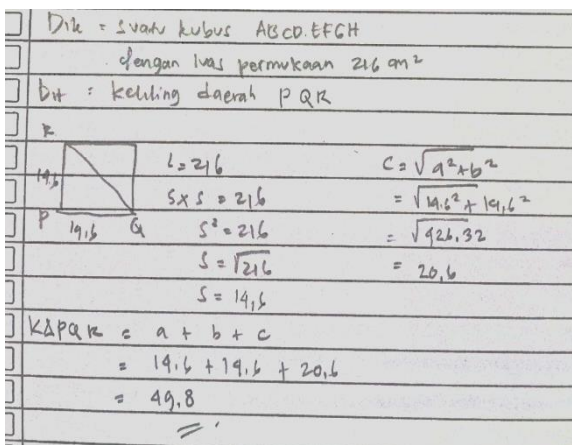 Dik = suatu kubus ABCD.EFGH
dengan luas permukaan 216 cm²
Dit : keliling daerah PQR
R
14,6
P 14,6 Q
L = 216
S x S = 216
S² = 216
S = √216
S = 14,6
C = √a²+b²
= √14.6² + 14,6²
= √426,32
= 20,6
K∆PQR = a + b + c
= 14.6 + 14,6 + 20,6
= 49,8